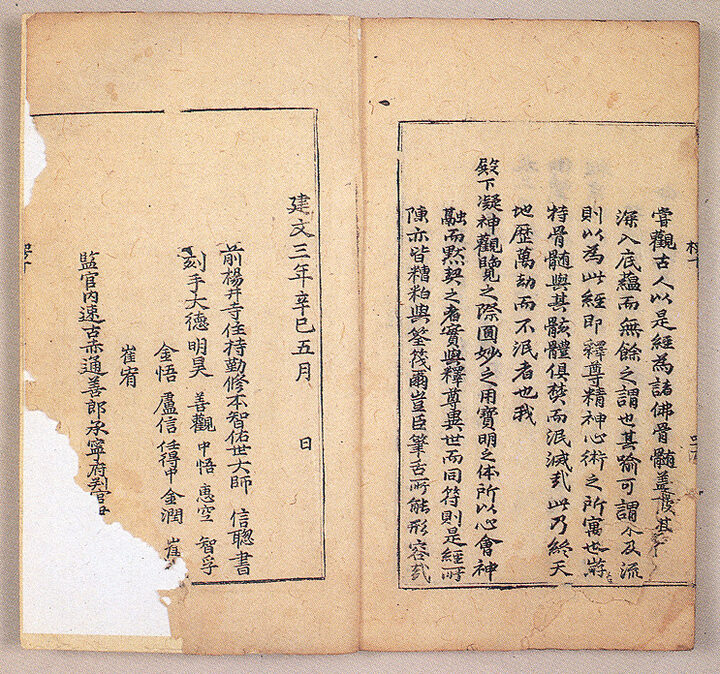 嘗觀古人以是經為諸佛骨髓盖
深入底蘊而無餘之謂也其喻可謂 及流
則以為此經即釋尊精神心術之所寓也
特骨髓與其骸體俱焚而泯滅㢤此乃終天
地歷萬劫而不泯者也我
殿下凝神觀覽之際圓妙之用寶明之体所以心會神
融而黙契之者實與釋尊異世而同符則是經所
陳亦皆糟粕與筌筏爾豈臣筆舌所能形容㢤
建文三年辛巳五月 日
前楊井寺住持勤修本智佑世大師 信聰 書
刻手大德 明昊 善觀 中悟 惠空 智孚
金悟 盧信 任得中 金潤 崔
崔宥
監官內速古赤通善郎承寧府判官